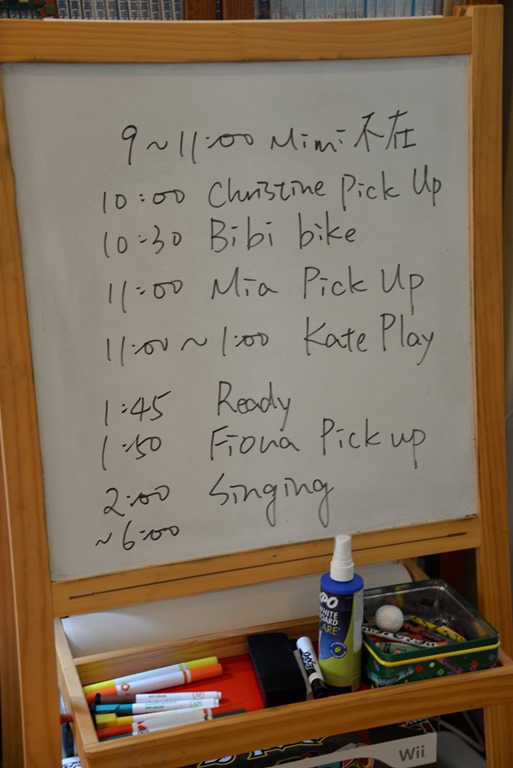 9~11:00 Mimi 不在
10:00 Christine Pick Up
10:30 Bibi bike
11:00 Mia Pick Up
11:00~1:00 Kate Play
1:45 Ready
1:50 Fiona Pick up
2:00 Singing
~6:00
EXPO
WHITE
BOARD
CARE
EXPO
Wii